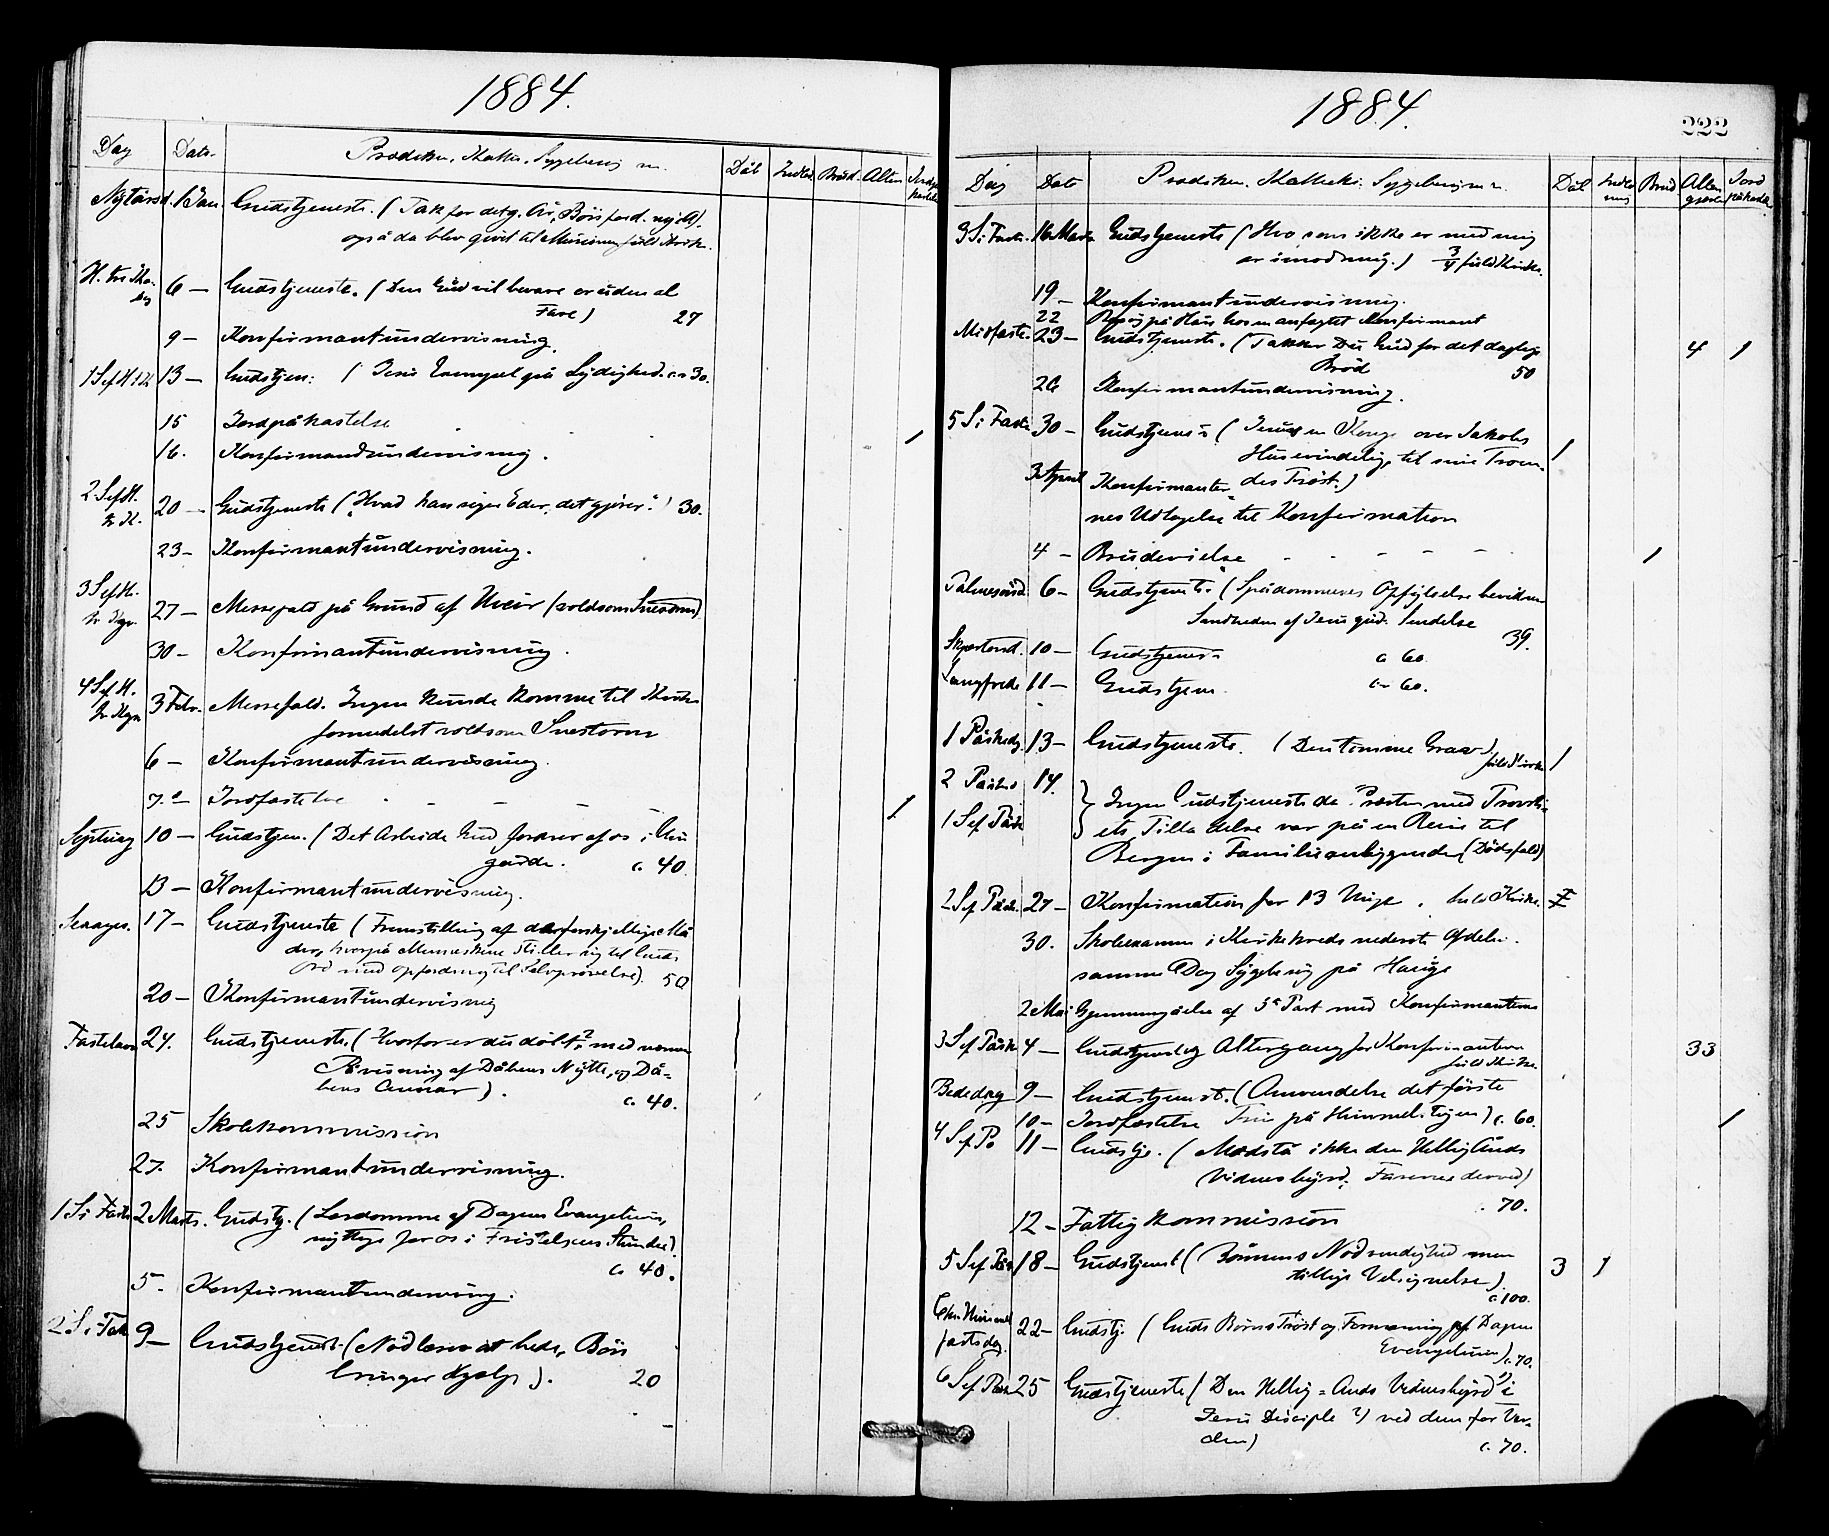 1884.
Dag Dato. Prædiken, Katke. Sygebesøg m. Dåb Indled Brud. Alter Jordpå kastelse
Nytårsd. 1 Jan. Gudstjeneste. (Tak for det g. År, Bön for d. ny A).
også da blev givet til Missionen fuld Kirke.
H. tre Kon. 6 — Gudstjeneste. (Den Gud vil bevare er uden al
Fare) 27
9 — Konfirmantundervisning.
1 S e f H 3 K 13 — Gudstjen: ( Jesu Exempel på Lydighed. ca 30.
15 Jordpåkastelse 1
16. Konfirmandundervisning.
2 S ef H. 20 — Gudstjeneste ("Hvad han siger Eder, det gjører".) 30.
tr K.
23 — Konfirmantundervisning.
3 S ef H.
tr Kgr. 27 — Messefald på Grund af Uveir (voldsom Snestorm)
30 — Konfirmantundervisning.
4 S ef H.
tr Kgr 3 Febr. Messefald. Ingen kunde komme til Kirke
formedelst voldsom Snestorm
6 — Konfirmantundervisning.
7. — Jordfæstelse 1
Septuag 10 — Gudstjen. (Det Arbeide Gud fordrer af os i Vin
gården. c. 40.
13 — Konfirmantundervisning.
Sexages. 17 — Gudstjeneste (Fremstilling af de forskjellige Må
der, hvorpå Menneskene stiller sig til Guds
Ord med opfordring til Selvprøvelse). 50
20 — Konfirmantundervisning
Fastelavn 24. Gudstjeneste. (Hvorfor er du döbt? med
Påvisning af Dåbens Nytte, og Då-
bens Ansvar). c. 40.
25 Skolekommission
27. Konfirmantundervisning.
1 S i Faste 2 Marts. Gudstj. (Lærdomme af Dagens Evangelium,
nyttige for os i Fristelsens Stunder).
c. 40.
5. Konfirmantundervisning.
2 S i Fast 9 — Gudstjenest. (Nød lærer at bede, Bön
bringer Hjælp). 20
1884. 222
Dag Dato Prædiken. Katheki. Sygebesøg m. Dåb Indled ning Brud Alter gjæster Jord påkastel
3 S i Faste. 16 Marts Gudstjeneste (Hvo som ikke er med mig
er imod mig.) 3/4 fuld Kirke.
19 — Konfirmantundervisning.
22 Besøg på Håne hos en anfægtet Konfirmant
Midfaste. 23 — Gudstjeneste. (Takker Du Gud for det daglige
Bröd 50 4 1
26 Konfirmantundervisning.
5 S i Faste 30 — Gudstjenes (Jesus en Konge over Jakobs
Hus evindelige, til sine Troen- 1
3 April Konfirmanter- des Tröst.)
nes Udtagelse til Konfirmation
4 — Brudevielse 1
Palmesönd. 6 — Gudstjenest. (Spådommenes Opfyldelse bevidner
Sandheden af Jesu gud. Sendelse
39.
Skjærtorsd. 10 — Gudstjenes c 60.
Langfreda 11 — Gudstjen. c 60.
1 Påskedg. 13 — Gudstjeneste. (Den tomme Grav)
fuld Kirke 1
2 Påsked 14. } Ingen Gudstjeneste da Præsten med Provsti-
1 S ef Påske ets Tilladelse var på en Reise til
Bergen i Familieanliggender (Dödsfald)
2 S ef Påsk. 27 — Konfirmation for 13 Unge. fuld Kirke.
30. Skoleexamen i Kirkekreds nederste Afdeln.
samme Dag Sygebesøg på Hauge
2 Mai Gjennemgåelse af 5te Part med Konfirmanterne
3 S ef Påsk 4 — Gudstjenest og Altergang for Konfirmanterne 33
fuld Kirke.
Bededag 9 — Gudstjenest. (Anvendelse det förste
10 — Jordfæstelse Trin på Himmelstigen) c. 60. 1
4 S ef På 11 — Gudstje. (Modstå ikke den Hellig Ånds
Vidnesbyrd. Farerne derved)
70.
12 — Fattigkommission
5 S ef Påsk 18 — Gudstjenest (Bönnens Nödvendighed men
tillige Velsignelse) 3 1
c. 100.
Chr. Himmel
fartsdag. 22 — Gudstj. (Guds Börns Tröst og Formaning af Dagens
Evangelium) c. 70.
6 S ef Påsk 25 Gudstjeneste (Den Hellig-Ånds Vidnesbyrd 1) i
Jesu Disciple 2) ved dem for Ver-
den) c. 70.